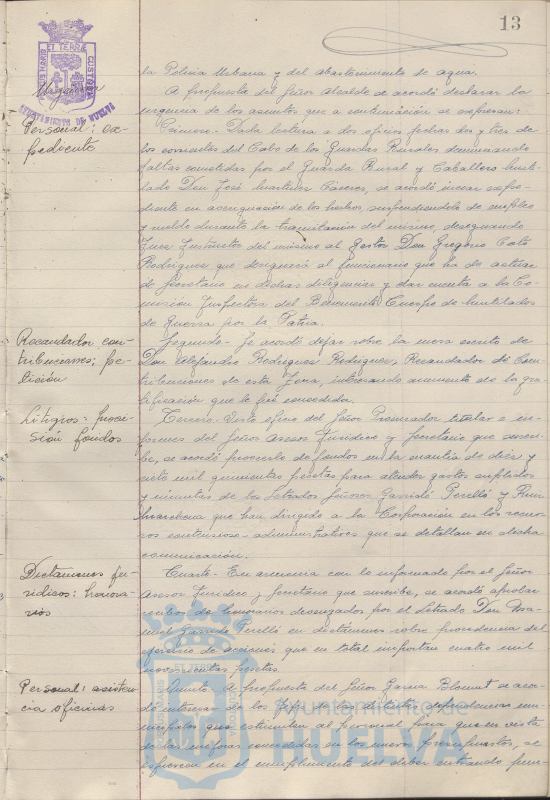 13
PORTUS MARIS ET TERRAE CUSTODIA
AYUNTAMIENTO DE HUELVA
la Policía Urbana y del abastecimiento de agua.
Urgencia
A propuesta del Señor Alcalde se acordó declarar la
urgencia de los asuntos que a continuación se expresan:
Personal: ex-
pediente
Primero- Dada lectura a dos oficios fechas dos y tres de
los corrientes del Cabo de los Guardas Rurales denunciando
faltas cometidas por el Guarda Rural y Caballero Muti-
lado Don José Martínez Cáceres, se acordó incoar expe-
diente en averiguación de los hechos, suspendiéndole de empleo
y sueldo durante la tramitación del mismo, designando
Juez Instructor del mismo al Gestor Don Gregorio Cato
Rodríguez que designará al funcionario que ha de actuar
de Secretario en dichas diligencias y dar cuenta a la Co-
misión Inspectora del Benemérito Cuerpo de Mutilados
de Guerra por la Patria.
Recaudador con-
tribuciones: pe-
tición
Segundo- Se acordó dejar sobre la mesa escrito de
Don Alejandro Rodríguez Rodríguez, Recaudador de Con-
tribuciones de esta Zona, interesando aumento de la gra-
tificación que le fué concedida.
Litigios: provi-
sión fondos
Tercero- Visto oficio del Señor Procurador titular e in-
formes del Señor Asesor Jurídico y Secretario que suscri-
be, se acordó proveerle de fondos en la cuantía de diez y
siete mil quinientas pesetas para atender gastos suplidos
y minutas de los Letrados Señores Garrido Perelló y
que han dirigido a la Corporación en los recur-
sos contencioso-administrativos que se detallan en dicha
comunicación.
Dictamenes ju-
rídicos: honora-
rios
Cuarto- En armonía con lo informado por el Señor
Asesor Jurídico y Secretario que suscribe, se acordó aprobar
de honorarios devengados por el Letrado Don Ma-
nuel Garrido Perelló en dictámenes sobre procedencia del
ejercicio de acciones que en total importan cuatro mil
novecientas pesetas.
Personal: asisten-
cia oficinas
Quinto- A propuesta del Señor García se acor-
dó interesar de los Jefes de las distintas dependencias mu-
nicipales que estimulen al personal para que en vista
de las mejoras concedidas en los nuevos Presupuestos, se
esfuercen en el cumplimiento del deber entrando pun-
Ayuntamiento de
HUELVA